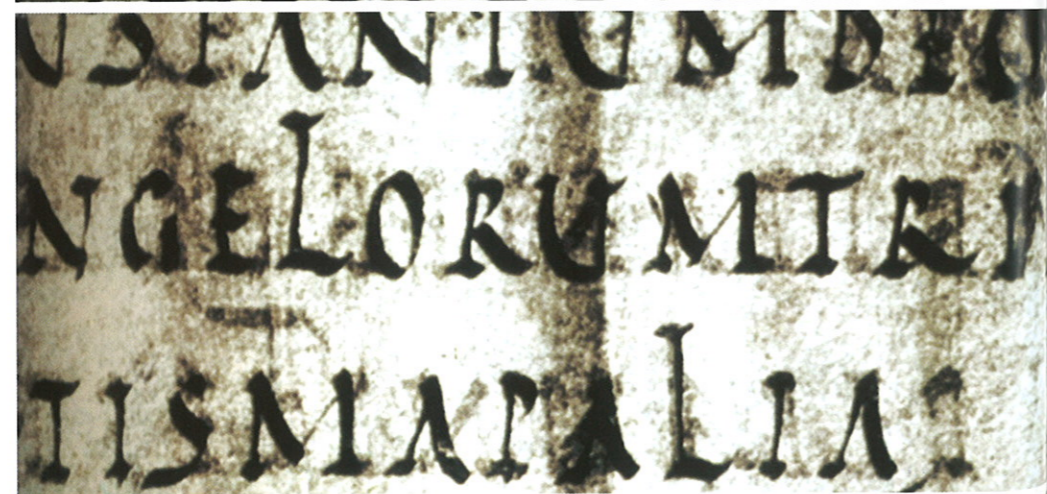 USTANTUMDEO
NGELORUMTRI
TISMAPALIA